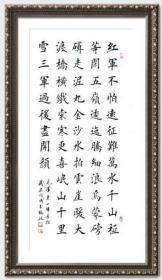 紅軍不怕遠征難萬水千山祗
等閒五嶺逶迤騰細浪烏蒙磅
礴走泥丸金沙水拍雲崖暖大
渡橋橫鐵索寒更喜岷山千里
雪三軍過後盡開顏
毛澤東七律長征